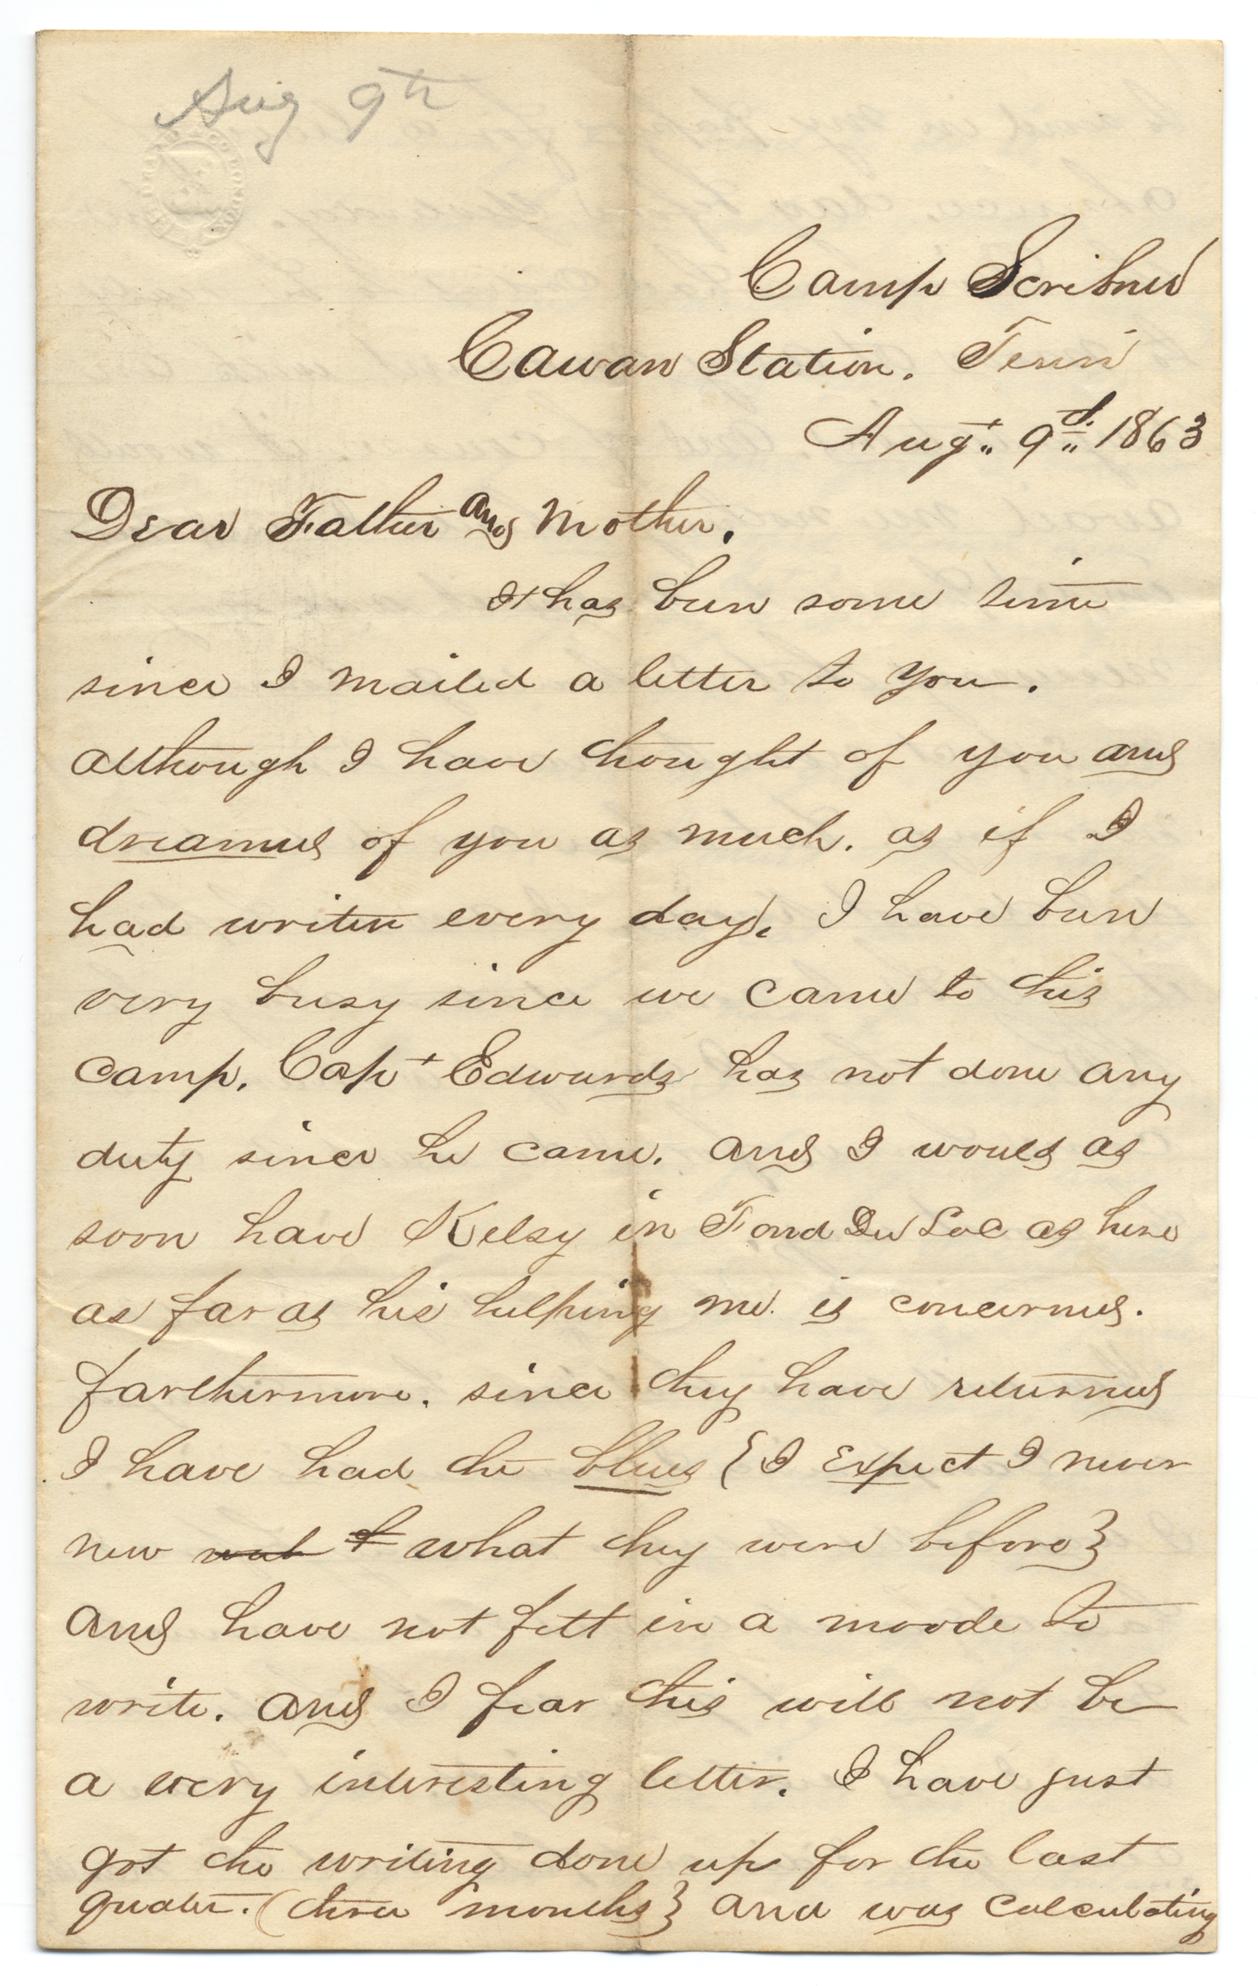 Aug 9th
Camp Scribner
Cawan Station. Tenn
Augt. 9d. 1863
Dear Father and Mother.
It has been some time
since I mailed a letter to you.
although I have thought of you and
dreamed of you as much. as if I
had writen every day. I have been
very busy since we came to this
camp. Capt Edwards has not done any
duty since he came. and I would as
soon have Kelsy in Fond Du Lac as here
as far as his helping me. is concerned.
farthermore. since they have returned
I have had the blues {I expect I never
new what they were before}
and have not felt in a moode to
write. and I fear this will not be
a very interesting letter. I have just
got the writing done up for the last
quater. (three months} and was calculating